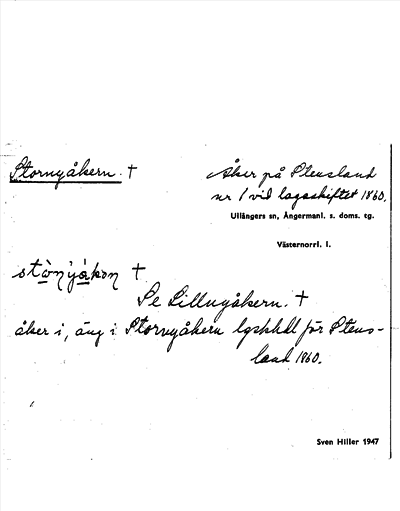 Stornyåkern. †
Åker på Stensland
nr 1 vid lagaskiftet 1860.
Ullångers sn, Ångermanl. s. doms. tg.
Västernorrl. l.
†
Se Lillnyåkern. †
åker i, äng i Stornyåkern lgskhdl för Stens-
land 1860.
Sven Hiller 1947